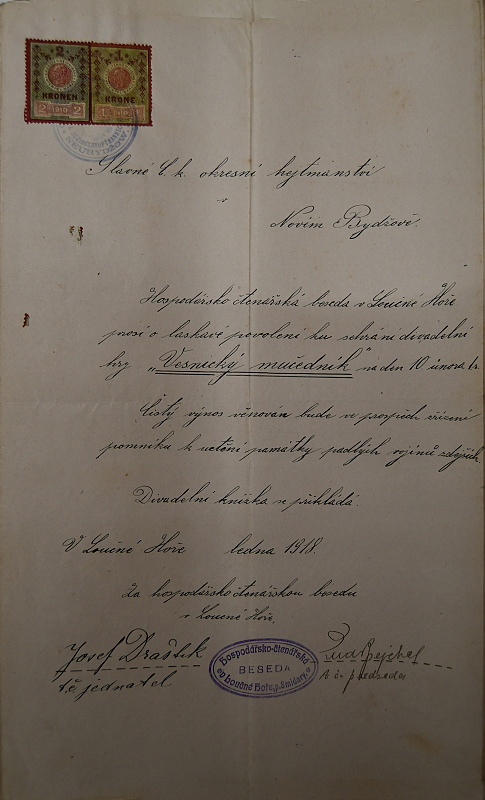 2 1
KRONEN KRONE
2 1910 2 1 1910 1
NEUBYDŽOW
Slavné C. k. okresní hejtmanství
v
Novém Bydžově.
Hospodářsko čtenářská beseda v Loučné Hoře
prosí o laskavé povolení ku sehrání divadelní
hry „Vesnický mučedník" na den 10 února t.r.
Čistý výnos věnován bude ve prospěch zřízení
pomníku k uctění památky padlých vojínů zdejších.
Divadelní knížka se přikládá.
V Loučné Hoře ledna 1918.
Za hospodářsko čtenářskou besedu
v Loučné Hoře,
Josef Draštík
t. č. jednatel
Hospodářsko-čtenářská
BESEDA
v Loučné Hoře, p. Smidary.
t. č. předseda